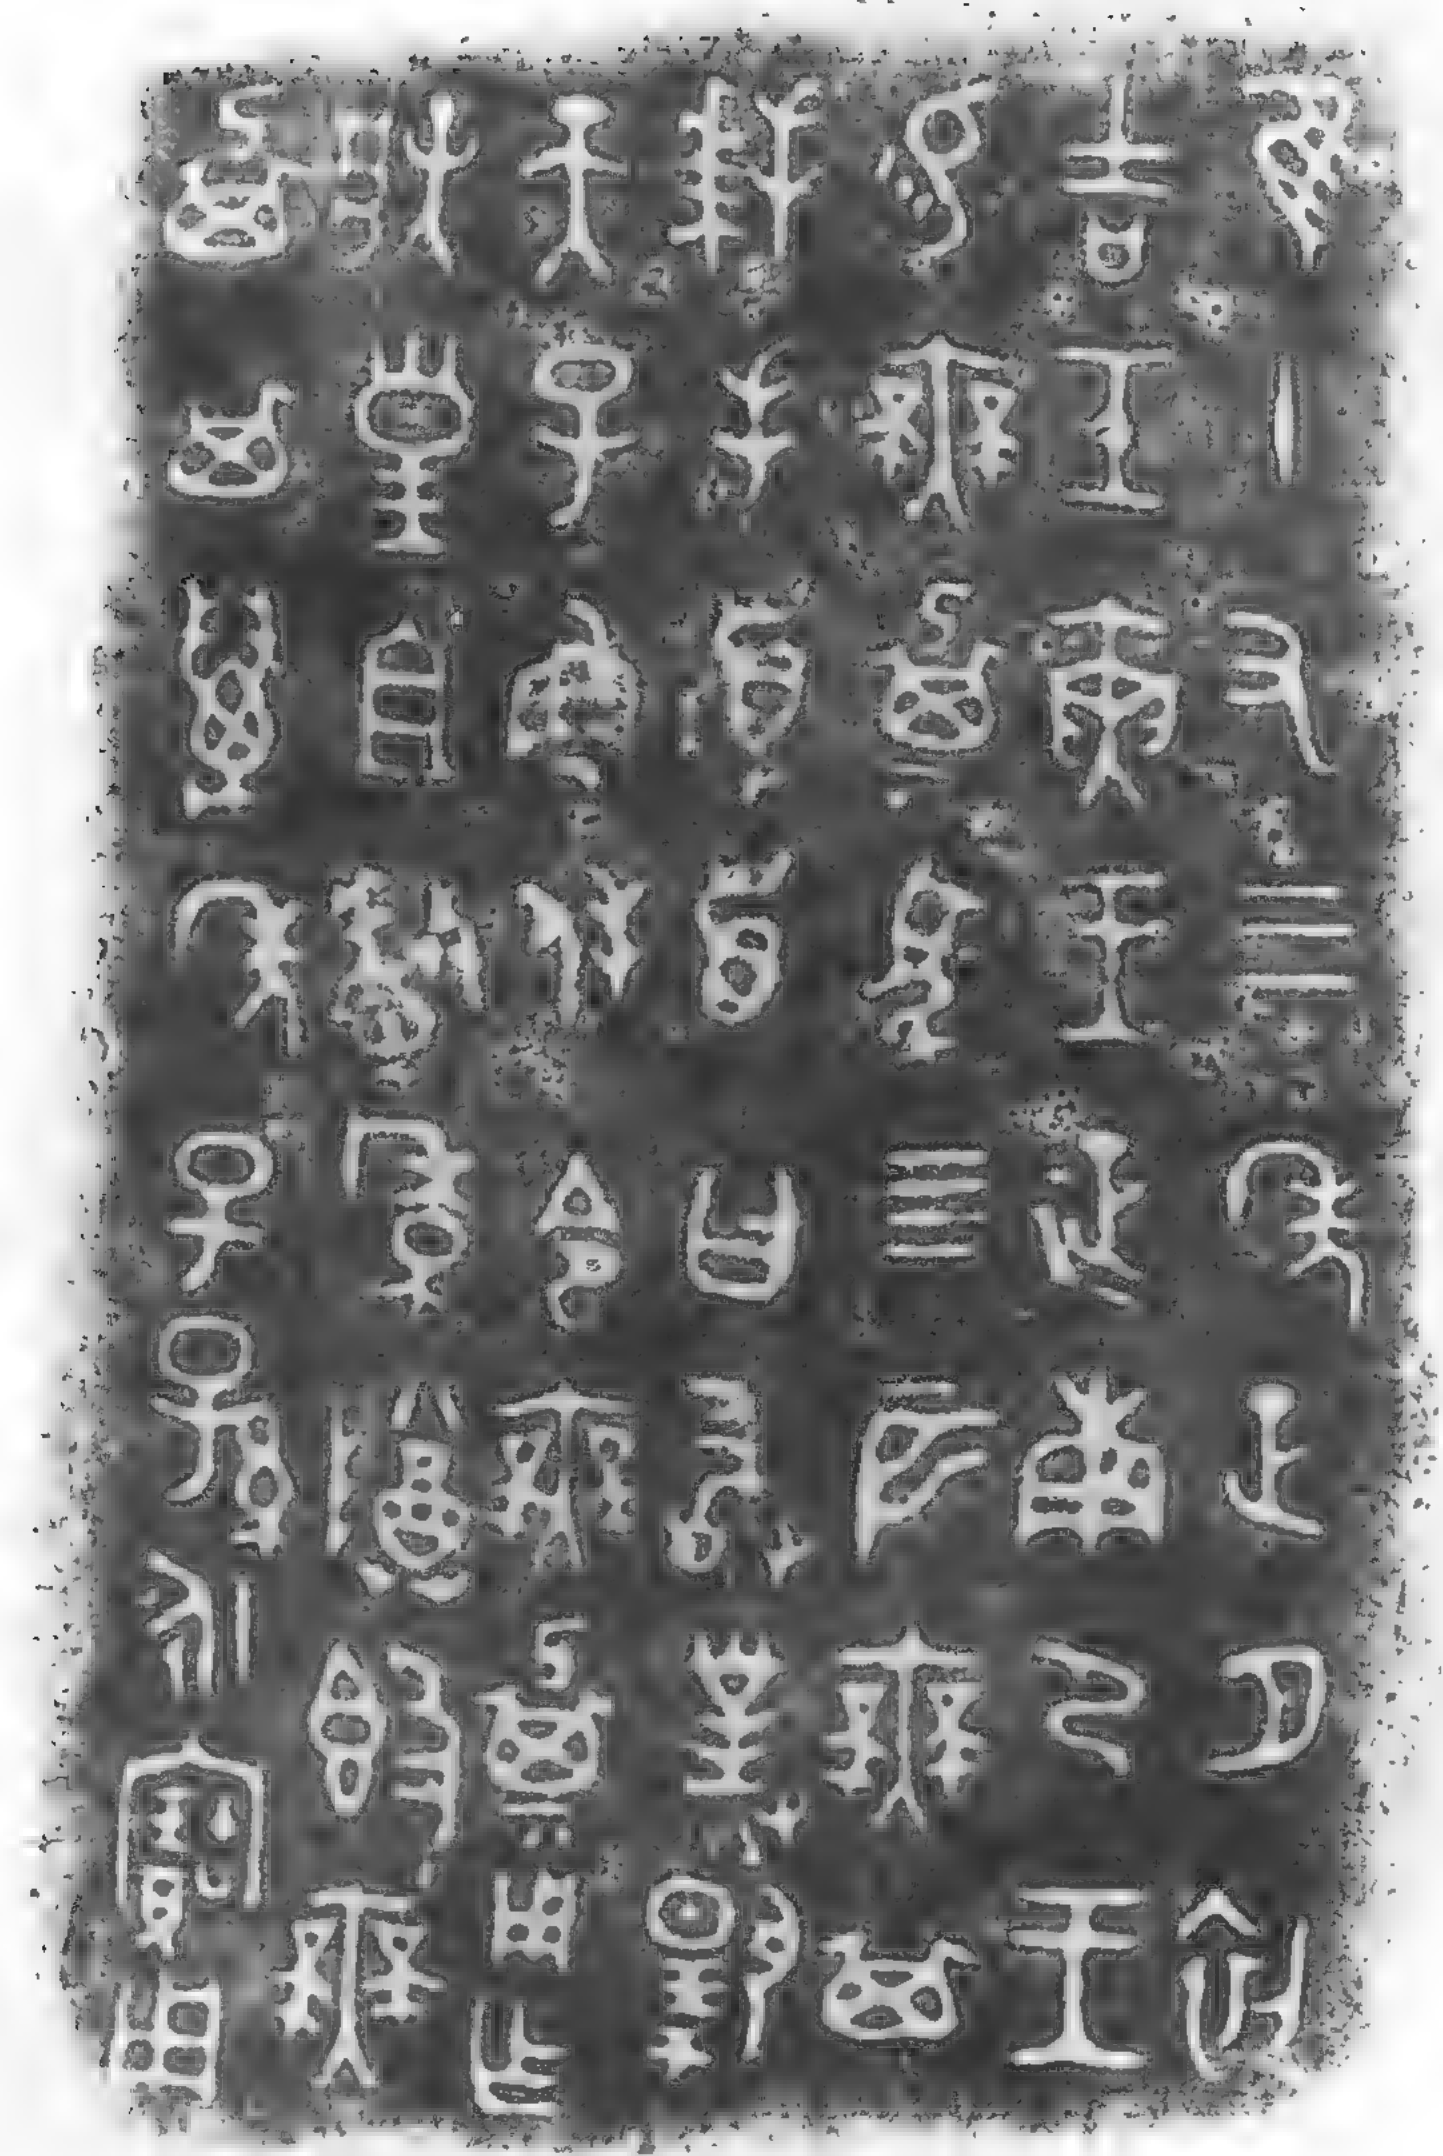 隹十又三年正月初
吉壬寅王征南尸王
易無㠱馬四匹無㠱
拜手𩒨首曰敢對揚
天子魯休令無㠱用乍
朕皇且釐季尊簋無
㠱其萬年子孫永寶用